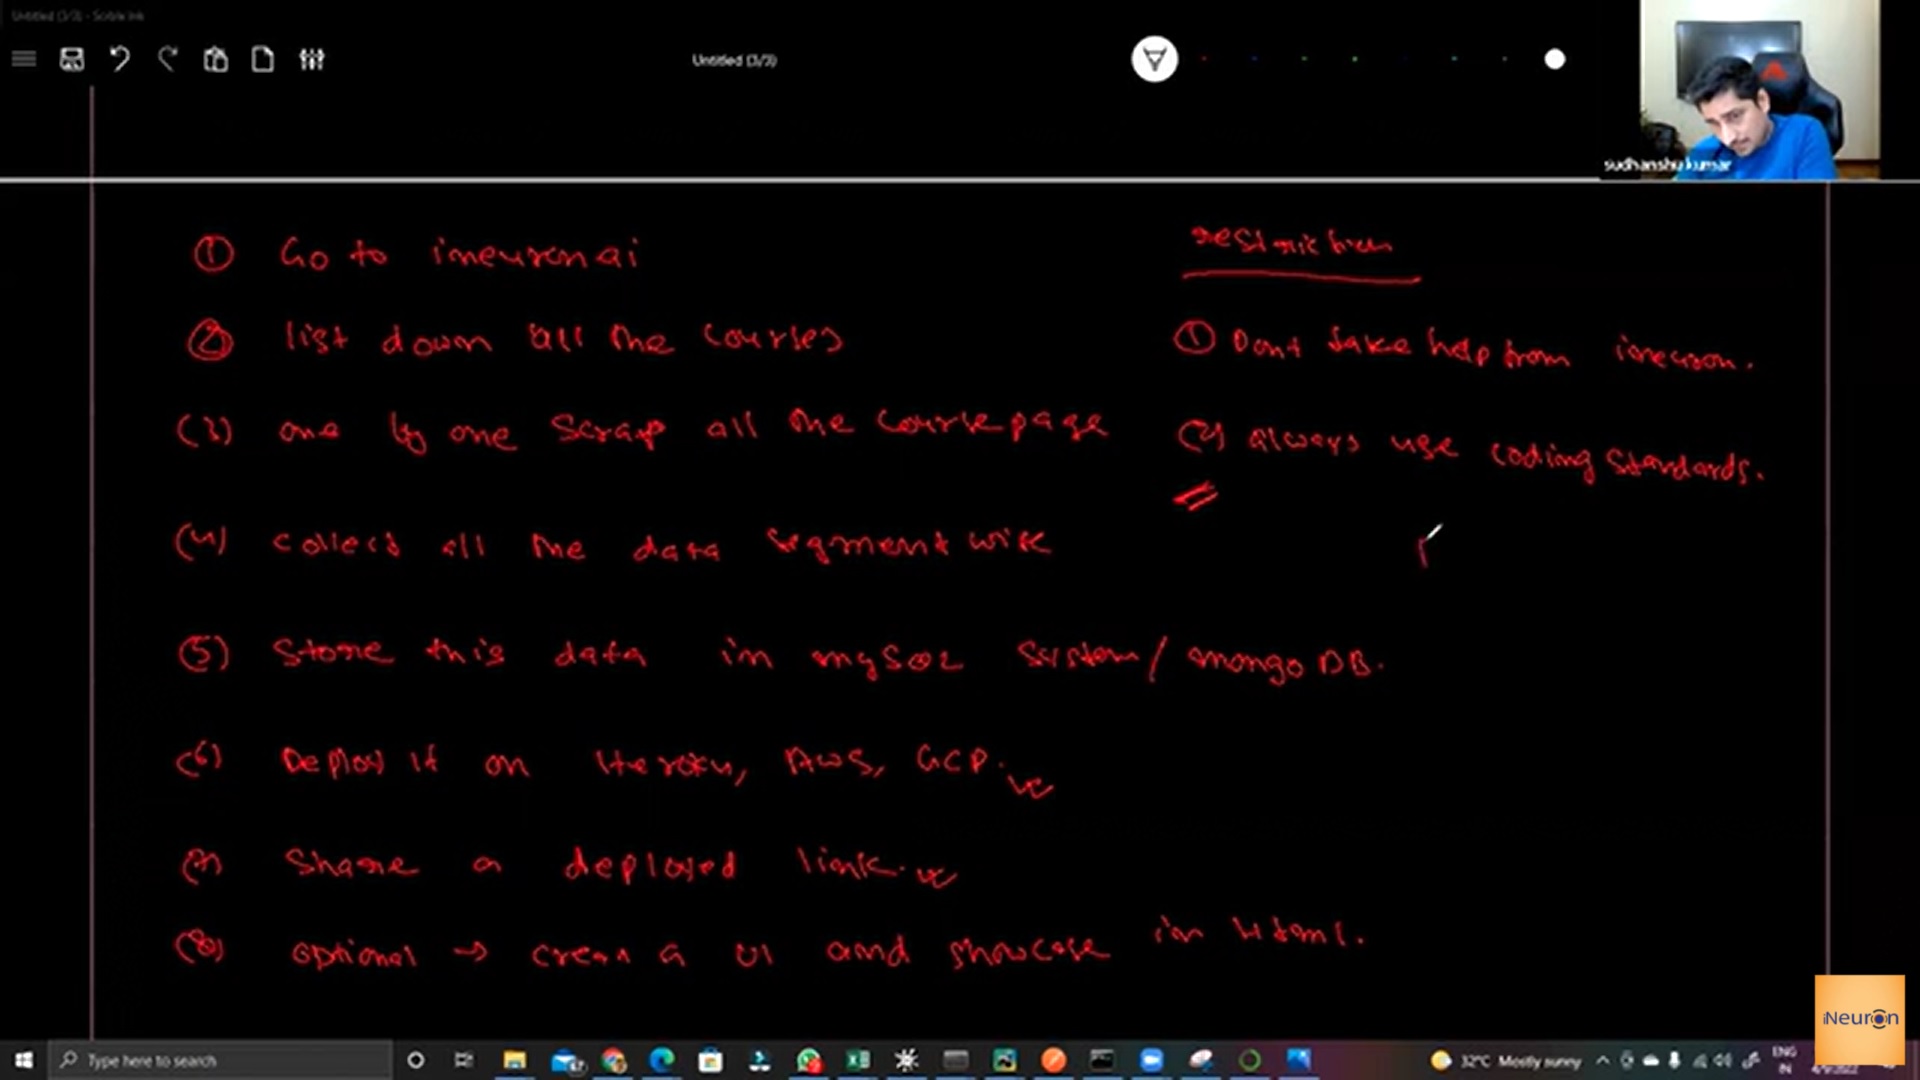 Untitled (3/3) - Scribble Ink
Untitled (3/3)
sudhanshu kumar
① Go to ineuron ai
② list down all the courses
(3) one by one scrap all the course page
(4) collect all the data segment wise
(5) store this data in mySQL system / mongo DB.
(6) Deploy it on Heroku, AWS, GCP.
(7) Share a deployed link.
(8) optional → create a UI and showcase in Html.
restriction
① Dont take help from ineuron.
(2) always use coding standards.
iNeuron
Type here to search
32°C Mostly sunny
ENG
IN